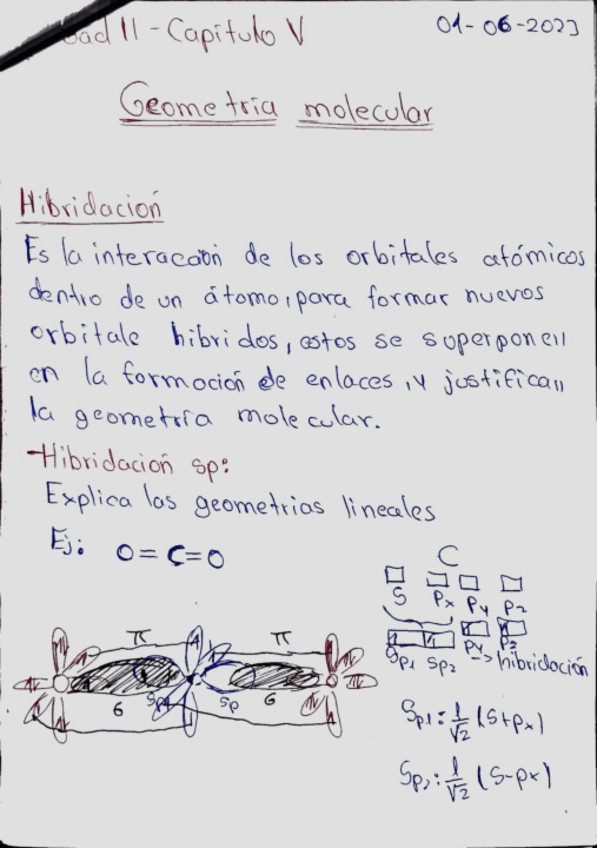 dad II - Capítulo V
01-06-2023
Geometría molecular
Hibridación
Es la interacción de los orbitales atómicos
dentro de un átomo, para formar nuevos
orbitale hibridos, estos se superponen
en la formación de enlaces, y justifican
la geometría molecular.
-Hibridación sp:
Explica las geometrias lineales
Ej: O=C=O
C
S Px Py Pz
Sp1 Sp2 Py Pz -> hibridación
π π
6 sp sp 6
Sp1: 1/√2 (S+px)
Sp2: 1/√2 (S-px)